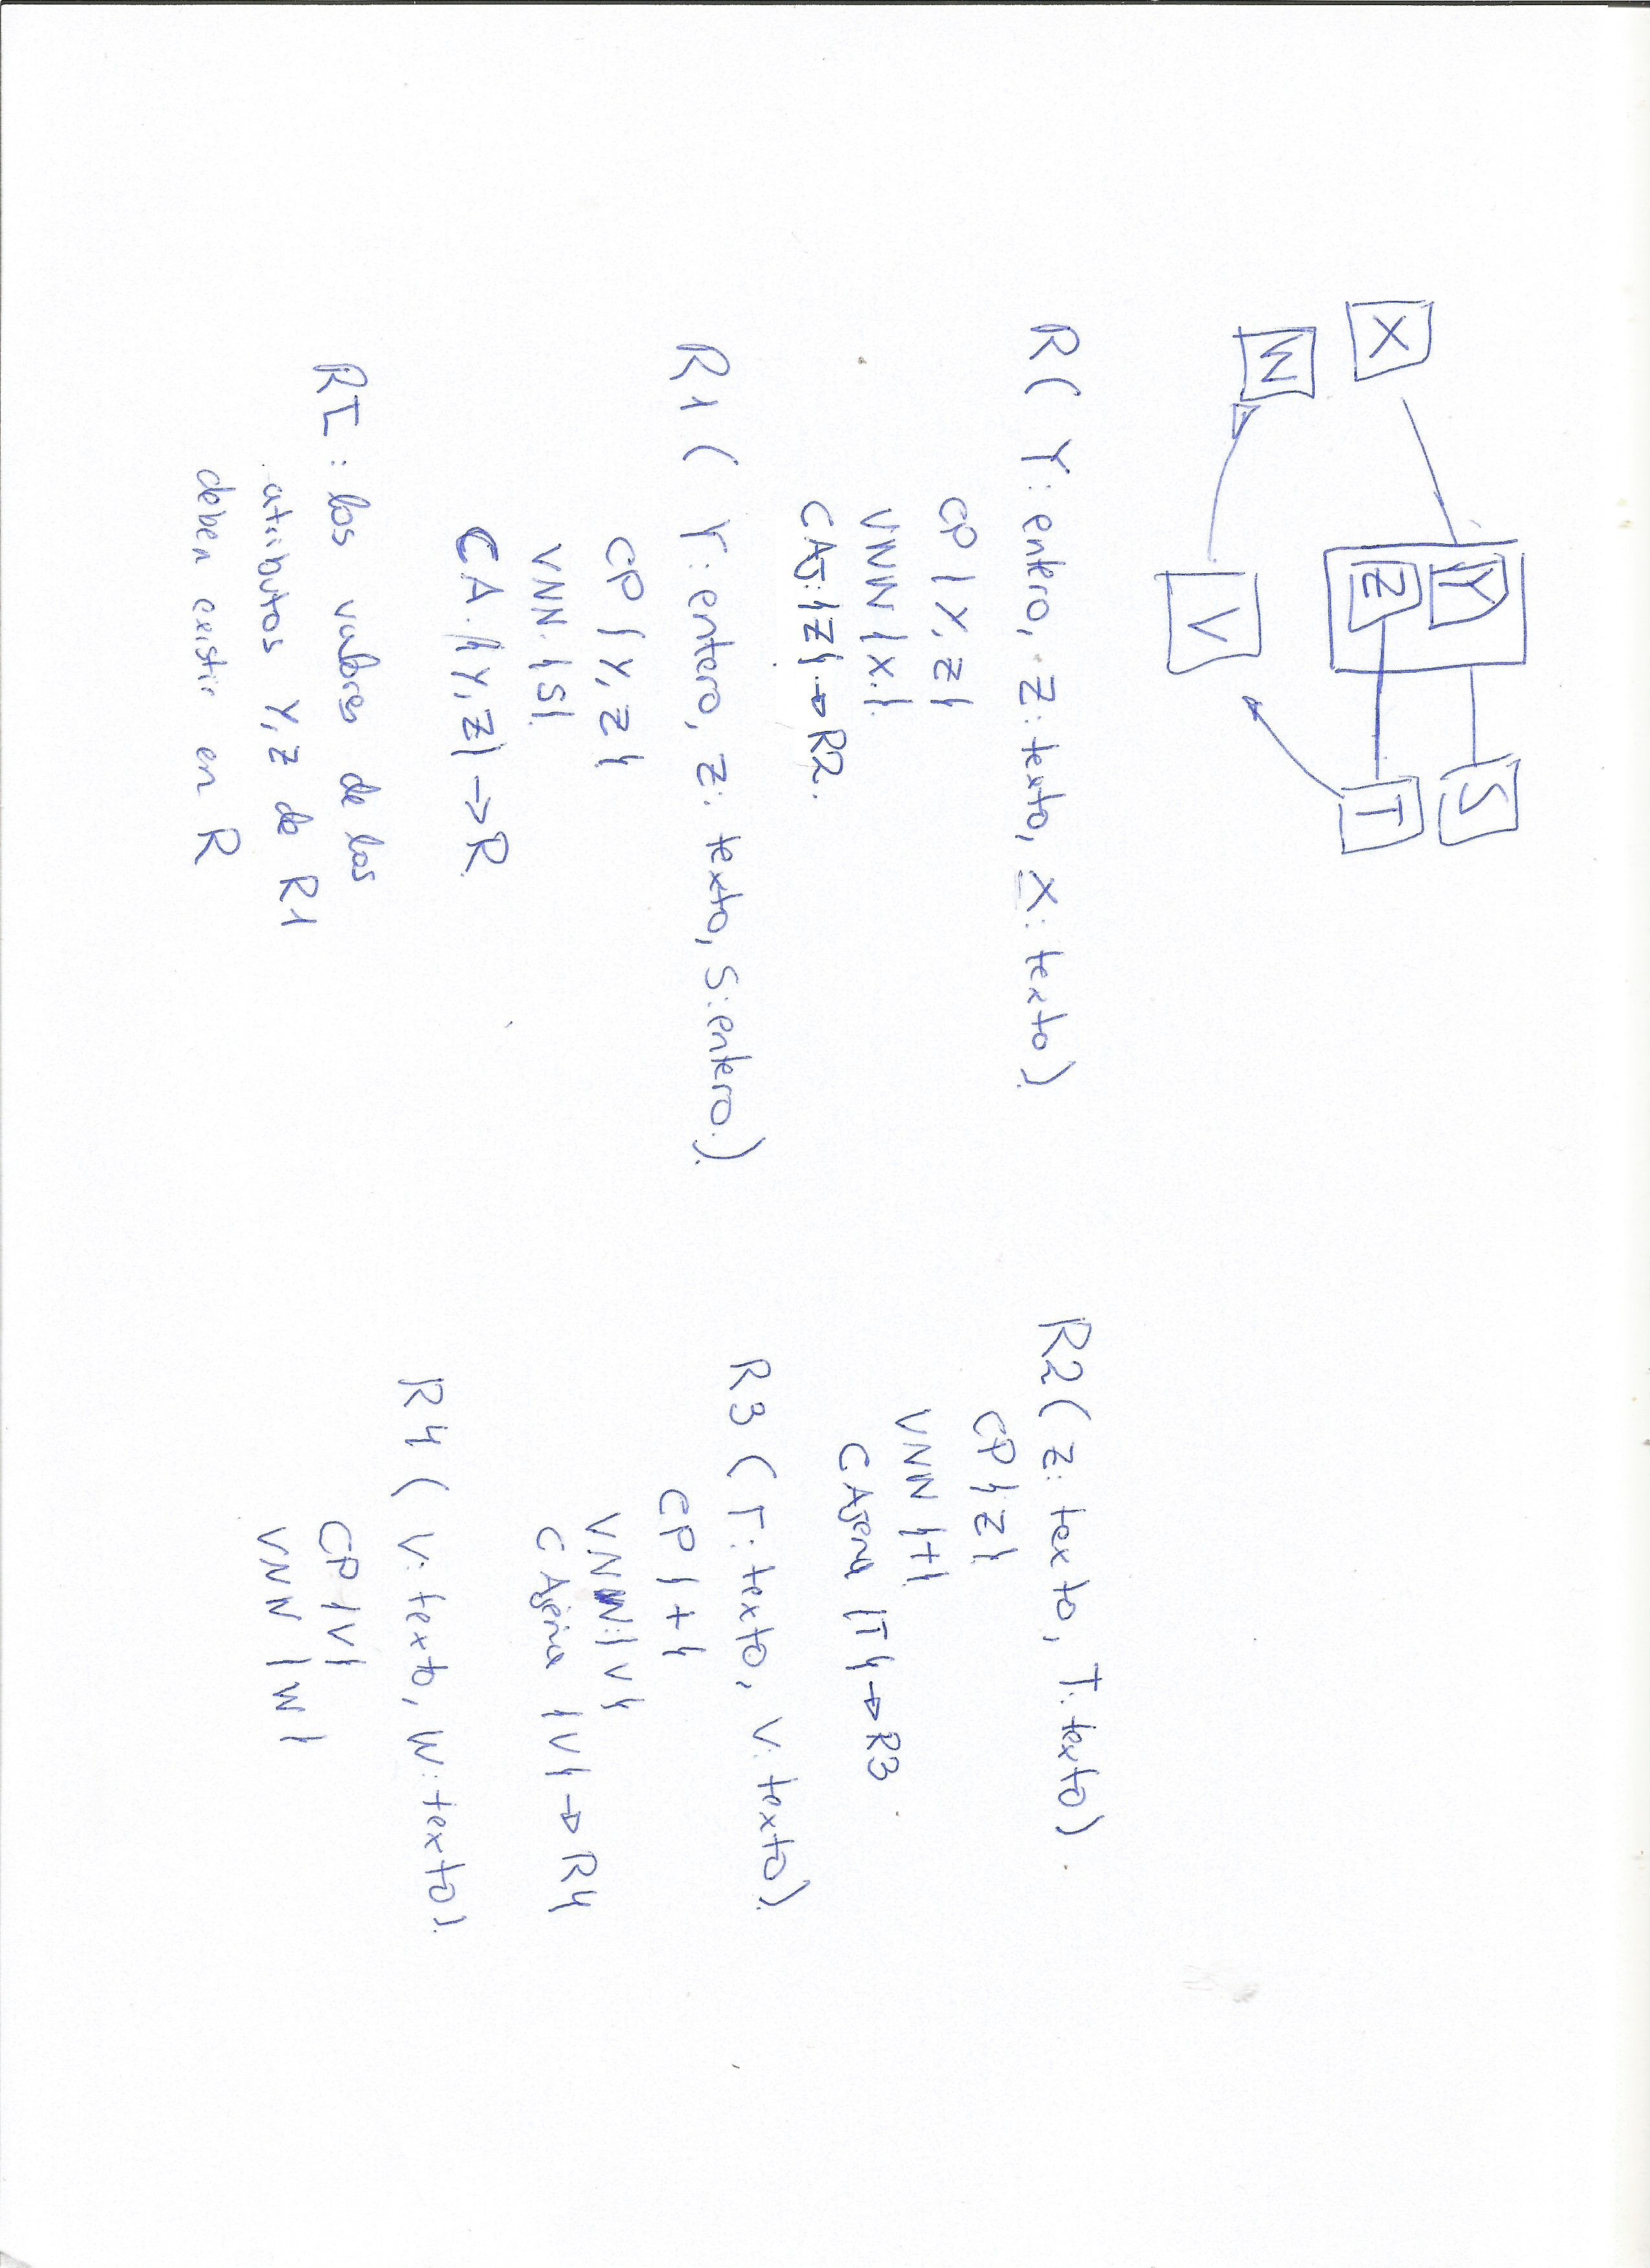 Y
S
X
Z
T
W
V
R ( Y: entero, Z: texto, X: texto).
CP { Y, Z }
VNN { X. }.
C AJ: { Z } → R2.
R1 ( Y: entero, Z: texto, S: entero.).
CP { Y, Z }
VNN. { S }.
CA. { Y, Z } → R.
RI : los valores de los
atributos Y, Z de R1
deben existir en R
R2 ( Z: texto, T: texto).
CP { Z }
VNN { t }
C Ajena { T } → R3
R3 ( T: texto, V: texto).
CP { t }
VNN: { V }
C Ajena { V } → R4
R4 ( V: texto, W: texto).
CP { V }
VNN { W }